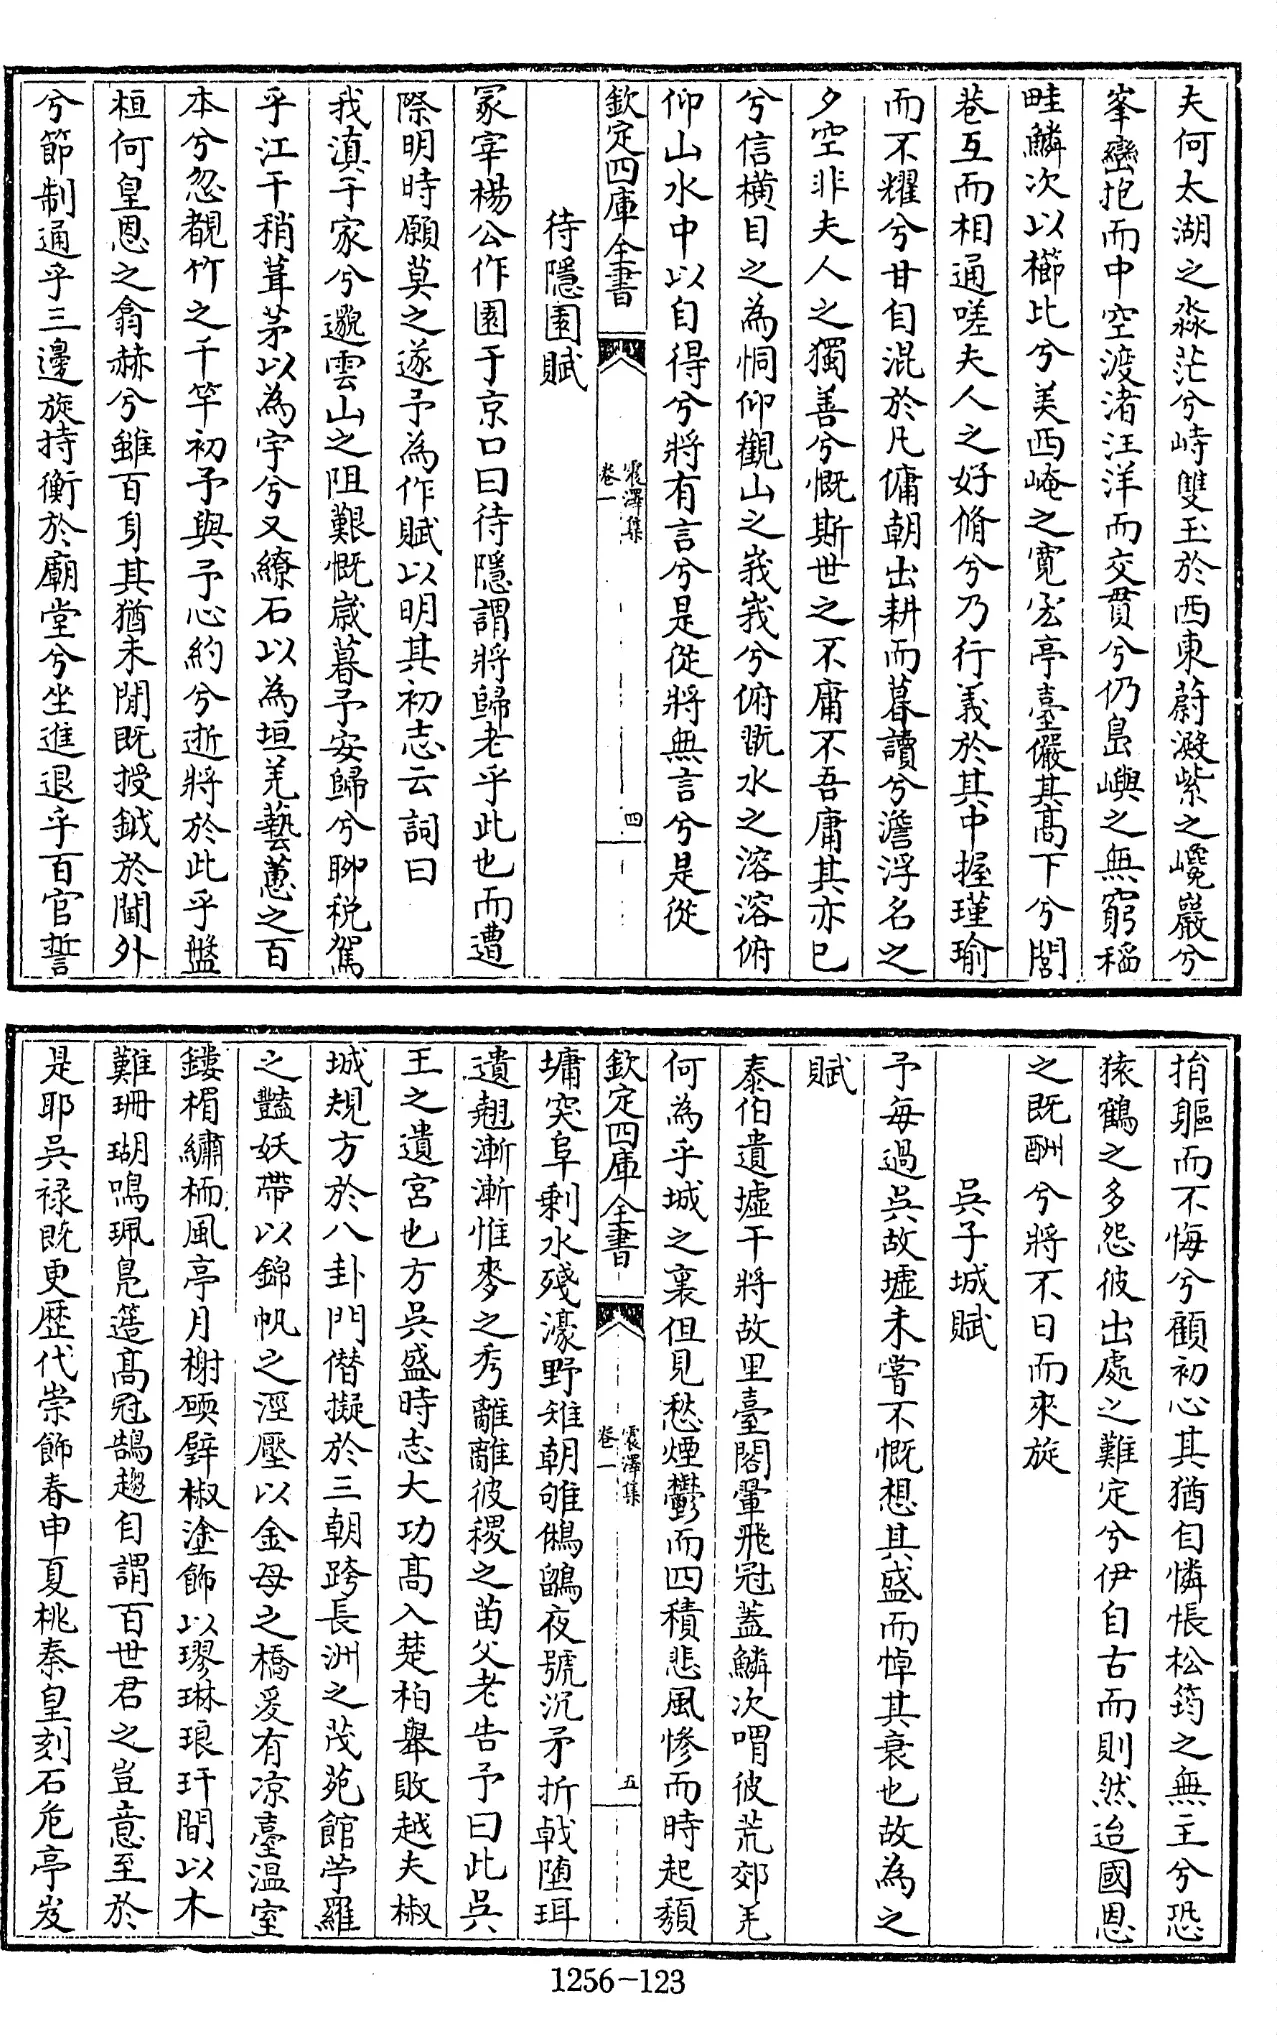 夫何太湖之淼茫兮峙雙玉於西東蔚凝紫之巉巖兮
峯巒抱而中空渡渚汪洋而交貫兮仍島嶼之無窮稻
畦鱗次以櫛比兮美西崦之寛宏亭臺儼其髙下兮閭
巷互而相通嗟夫人之好脩兮乃行義於其中握瑾瑜
而不耀兮甘自混於凡傭朝出耕而暮讀兮澹浮名之
夕空非夫人之獨善兮慨斯世之不庸不吾庸其亦已
兮信横目之為恫仰觀山之峩峩兮俯翫水之溶溶俯
仰山水中以自得兮將有言兮是從將無言兮是從
欽定四庫全書
震澤集
卷一
四
待隱園賦
冢宰楊公作園于京口曰待隱謂將歸老乎此也而遭
際明時願莫之遂予為作賦以明其初志云詞曰
我滇于家兮邈雲山之阻艱慨嵗暮予安歸兮聊税駕
乎江干稍葺茅以為宇兮又繚石以為垣羌藝蕙之百
本兮忽覩竹之千竿初予與予心約兮逝將於此乎盤
桓何皇恩之翕赫兮雖百身其猶未閒既授鉞於閫外
兮節制通乎三邊旋持衡於廟堂兮坐進退乎百官誓
捐軀而不悔兮顧初心其猶自憐悵松筠之無主兮恐
猿鶴之多怨彼出處之難定兮伊自古而則然迨國恩
之既酬兮將不日而來旋
吳子城賦
予每過吳故墟未嘗不慨想其盛而悼其衰也故為之
賦
泰伯遺墟干將故里臺閣翬飛冠蓋鱗次喟彼荒郊羌
何為乎城之裏但見愁煙鬱而四積悲風慘而時起頽
欽定四庫全書
震澤集
卷一
五
墉突阜剰水殘濠野雉朝雊鵂鶹夜號沉矛折戟墮珥
遺翹漸漸惟麥之秀離離彼稷之苗父老告予曰此吳
王之遺宮也方吳盛時志大功髙入楚柏舉敗越夫椒
城規方於八卦門僭擬於三朝跨長洲之茂苑館苧羅
之豔妖帶以錦帆之涇壓以金母之橋爰有凉臺温室
鏤楣繡栭風亭月榭瑌壁椒塗飾以璆琳琅玕間以木
難珊瑚鳴珮鳬舄髙冠鵠趨自謂百世君之豈意至於
是耶吳禄既更歴代崇飾春申夏桃秦皇刻石危亭岌
1256-123